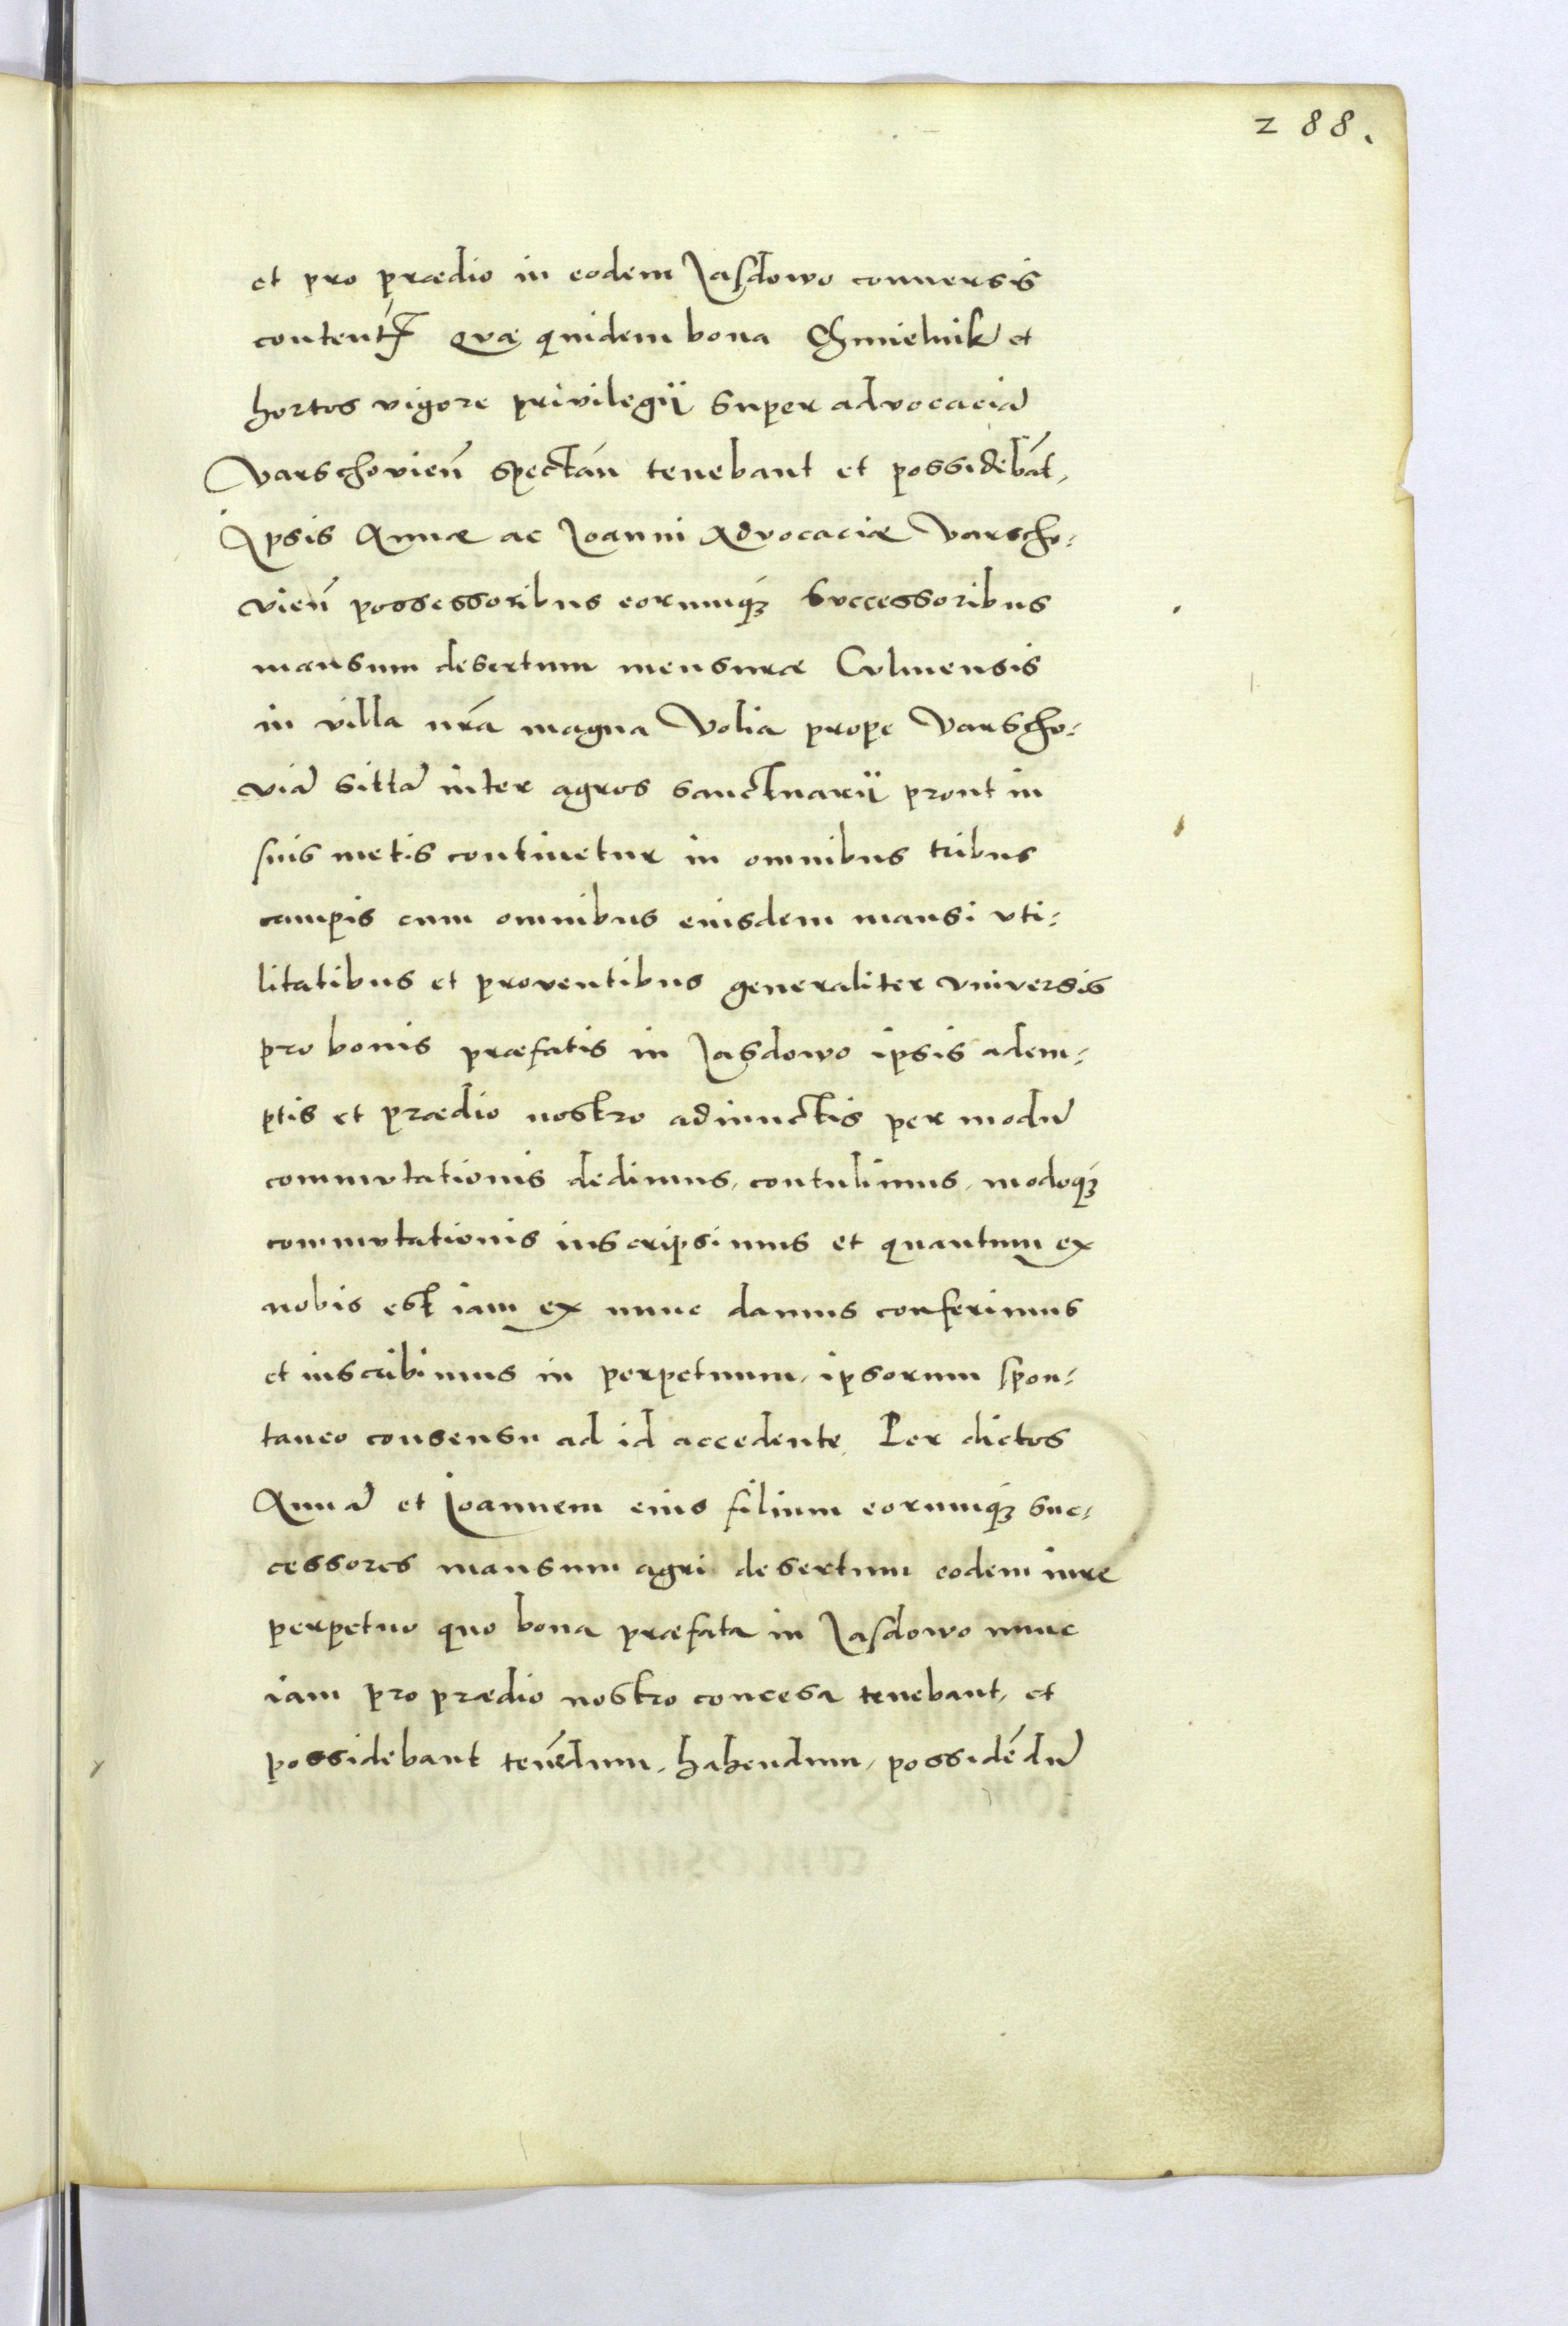 288.
et pro prædio in eodem Jasdowo conuersis
quæ quidem bona Chmielnik et
hortos vigore privilegij super advocaciā
Varschovieñ spectāń tenebant et possidebāt,
Ipsis Annæ ac Joanni Advocaciæ Varscho-
vieñ possessoribus eorumqȝ successoribus
mansum desertum mensuræ Culmensis
in villa nr̄a magna Volia prope Varscho-
viā sittā inter agros sanctuarij prout in
suis metis continetur in omnibus tribus
campis cum omnibus eiusdem mansi vti-
litatibus et proventibus generaliter vniversis
pro bonis præfatis in Jasdowo ipsis adem-
ptis et prædio nostro adiunctis per modū
commvtationis dedimus, contulimus, modoqȝ
commvtationis inscripsimus et quantum ex
nobis est iam ex nunc damus conferimus
et inscribimus in perpetuum, ipsorum spon-
taneo consensu ad id accedente. Per dictos
Annā et Joannem eius filium eorumqȝ suc-
cessores mansum agri desertum eodem iure
perpetuo quo bona præfata in Jasdowo nunc
iam pro prædio nostro concesa tenebant, et
possidebant tenēdum, habendum, possidēdū